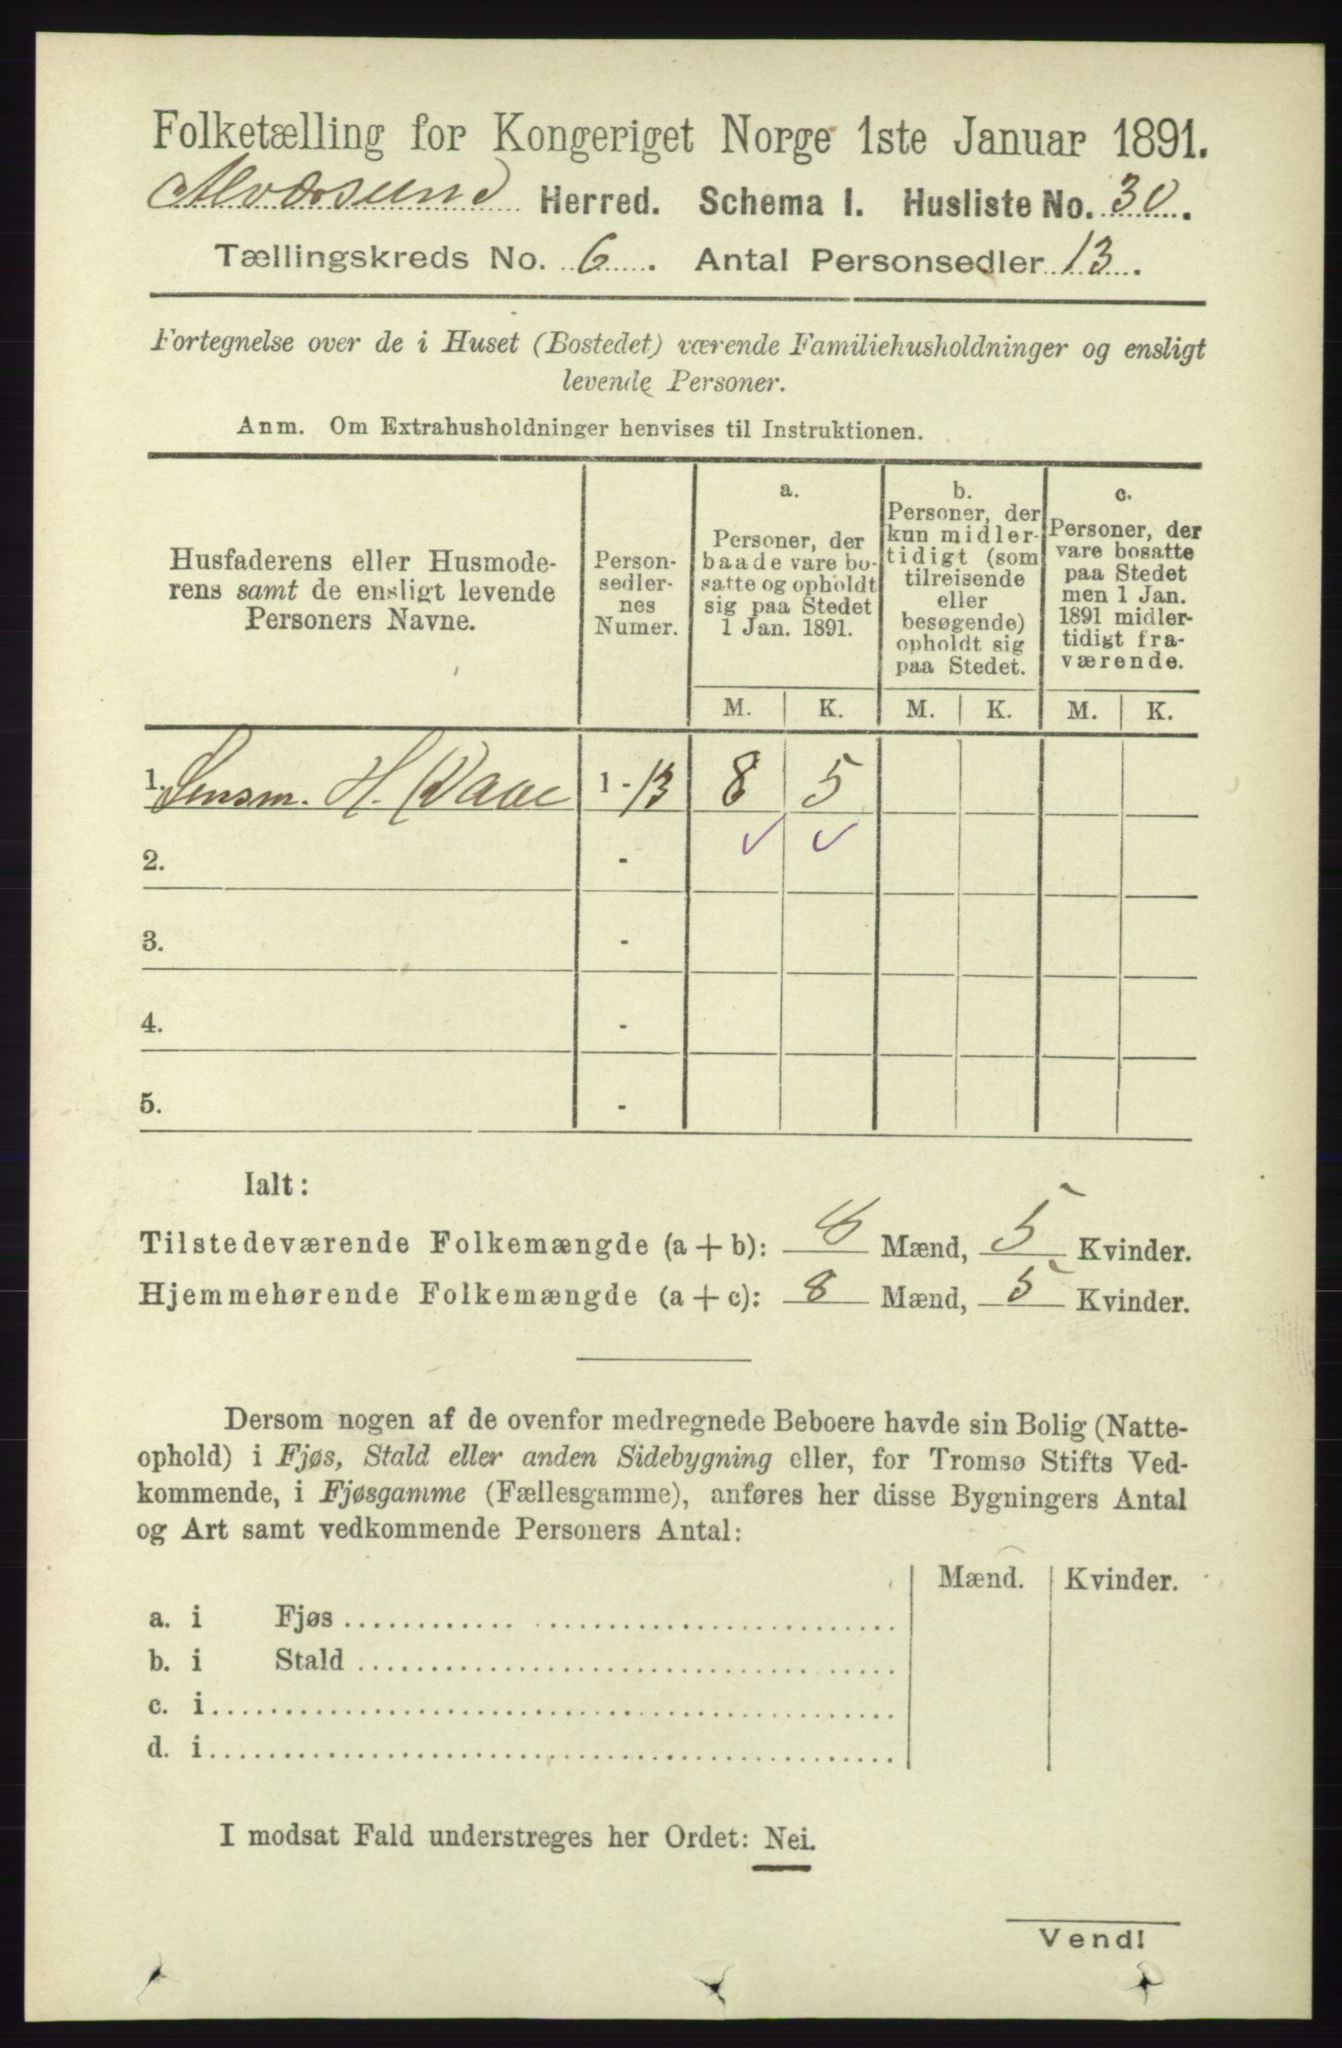 Folketælling for Kongeriget Norge 1ste Januar 1891.
Alværsund Herred. Schema I. Husliste No. 30.
Tællingskreds No. 6. Antal Personsedler 13.
Fortegnelse over de i Huset (Bostedet) værende Familiehusholdninger og ensligt
levende Personer.
Anm. Om Extrahusholdninger henvises til Instruktionen.
Husfaderens eller Husmode-
rens samt de ensligt levende
Personers Navne.
Person-
sedler-
nes
Numer.
a.
Personer, der
baade vare bo-
satte og opholdt
sig paa Stedet
1 Jan. 1891.
b.
Personer, der
kun midler-
tidigt (som
tilreisende
eller
besøgende)
opholdt sig
paa Stedet.
c.
Personer, der
vare bosatte
paa Stedet
men 1 Jan.
1891 midler-
tidigt fra-
værende.
M. K. M. K. M. K.
1. Lensm. H. Waae 1 - 13 8 5
2. -
3. -
4. -
5. -
Ialt:
Tilstedeværende Folkemængde (a + b): 8 Mænd, 5 Kvinder.
Hjemmehørende Folkemængde (a + c): 8 Mænd, 5 Kvinder.
Dersom nogen af de ovenfor medregnede Beboere havde sin Bolig (Natte-
ophold) i Fjøs, Stald eller anden Sidebygning eller, for Tromsø Stifts Ved-
kommende, i Fjøsgamme (Fællesgamme), anføres her disse Bygningers Antal
og Art samt vedkommende Personers Antal:
Mænd. Kvinder.
a. i Fjøs
b. i Stald
c. i
d. i
I modsat Fald understreges her Ordet: Nei.
Vend!